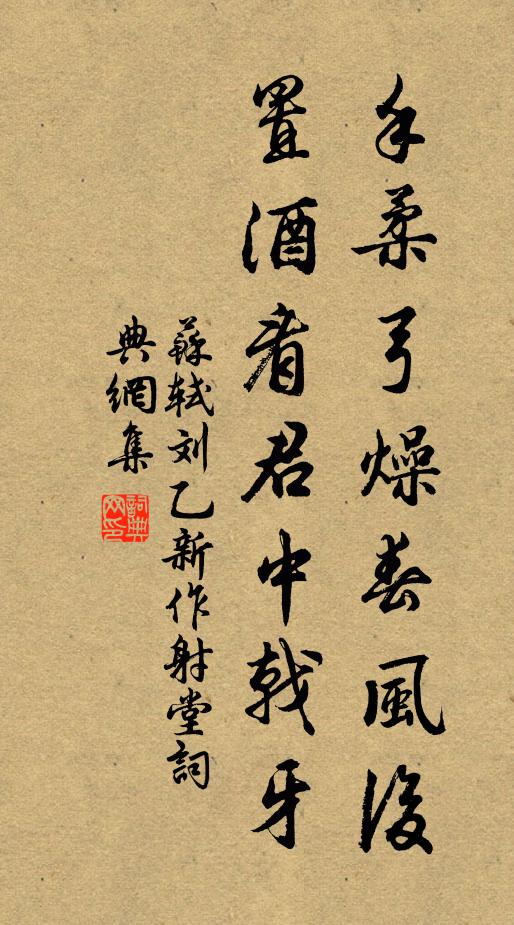 手柔弓燥春風後
置酒看君中戟牙
蘇軾刘乙新作射堂詞
典網集
詞典網印